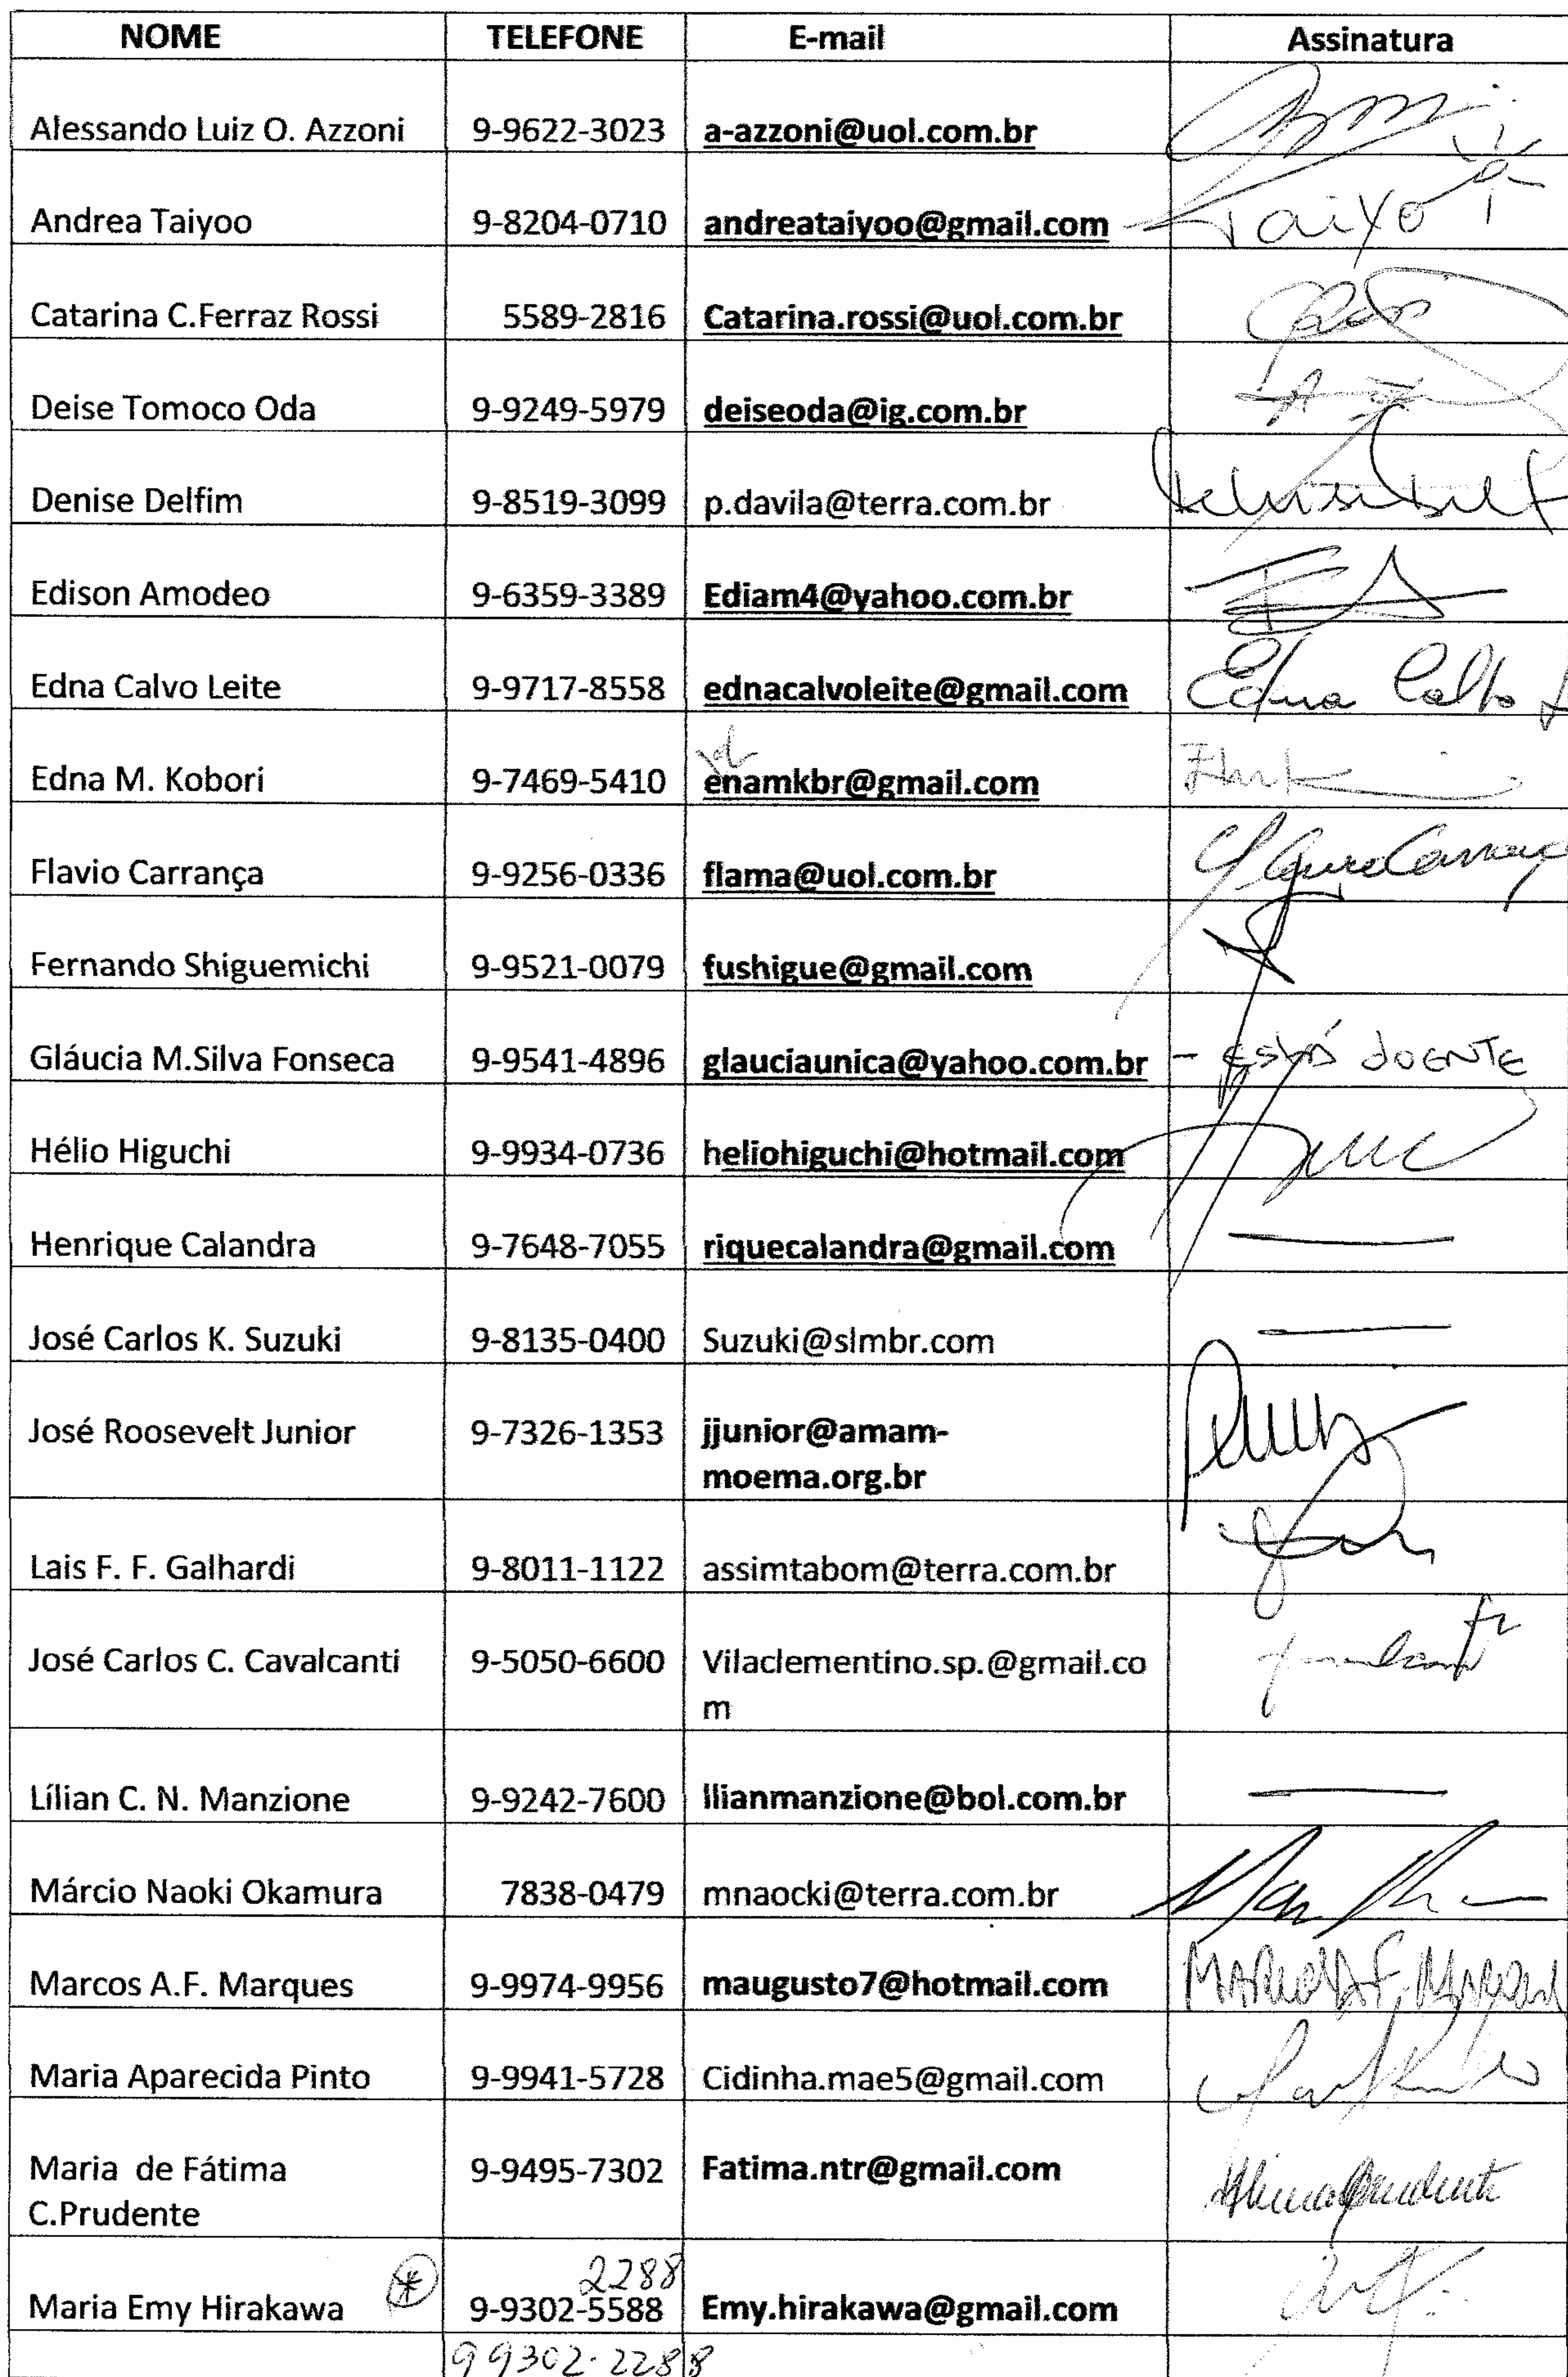 NOME TELEFONE E-mail Assinatura
Alessando Luiz O. Azzoni 9-9622-3023 a-azzoni@uol.com.br
Andrea Taiyoo 9-8204-0710 andreataiyoo@gmail.com Taiyo
Catarina C.Ferraz Rossi 5589-2816 Catarina.rossi@uol.com.br
Deise Tomoco Oda 9-9249-5979 deiseoda@ig.com.br
Denise Delfim 9-8519-3099 p.davila@terra.com.br
Edison Amodeo 9-6359-3389 Ediam4@yahoo.com.br
Edna Calvo Leite 9-9717-8558 ednacalvoleite@gmail.com Edna Calvo L
d
Edna M. Kobori 9-7469-5410 enamkbr@gmail.com
Flavio Carrança 9-9256-0336 flama@uol.com.br
Fernando Shiguemichi 9-9521-0079 fushigue@gmail.com
Gláucia M.Silva Fonseca 9-9541-4896 glauciaunica@yahoo.com.br - ESTÁ DOENTE
Hélio Higuchi 9-9934-0736 heliohiguchi@hotmail.com
Henrique Calandra 9-7648-7055 riquecalandra@gmail.com —
José Carlos K. Suzuki 9-8135-0400 Suzuki@slmbr.com —
José Roosevelt Junior 9-7326-1353 jjunior@amam-
moema.org.br
Lais F. F. Galhardi 9-8011-1122 assimtabom@terra.com.br
José Carlos C. Cavalcanti 9-5050-6600 Vilaclementino.sp.@gmail.co
m
Lílian C. N. Manzione 9-9242-7600 llianmanzione@bol.com.br —
Márcio Naoki Okamura 7838-0479 mnaocki@terra.com.br
Marcos A.F. Marques 9-9974-9956 maugusto7@hotmail.com
Maria Aparecida Pinto 9-9941-5728 Cidinha.mae5@gmail.com
Maria de Fátima 9-9495-7302 Fatima.ntr@gmail.com
C.Prudente
2288
Maria Emy Hirakawa * 9-9302-5588 Emy.hirakawa@gmail.com
99302-2288